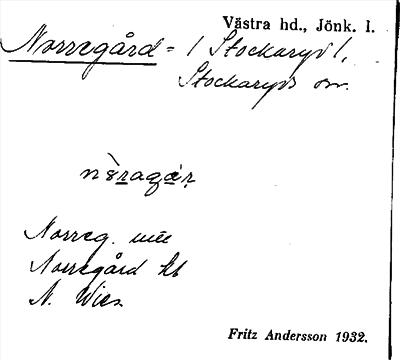 Västra hd., Jönk. l.
Norregård = / Stockaryd /,
Stockaryds sn.
Norreg.
Norregård kb
N. Wies
Fritz Andersson 1932.